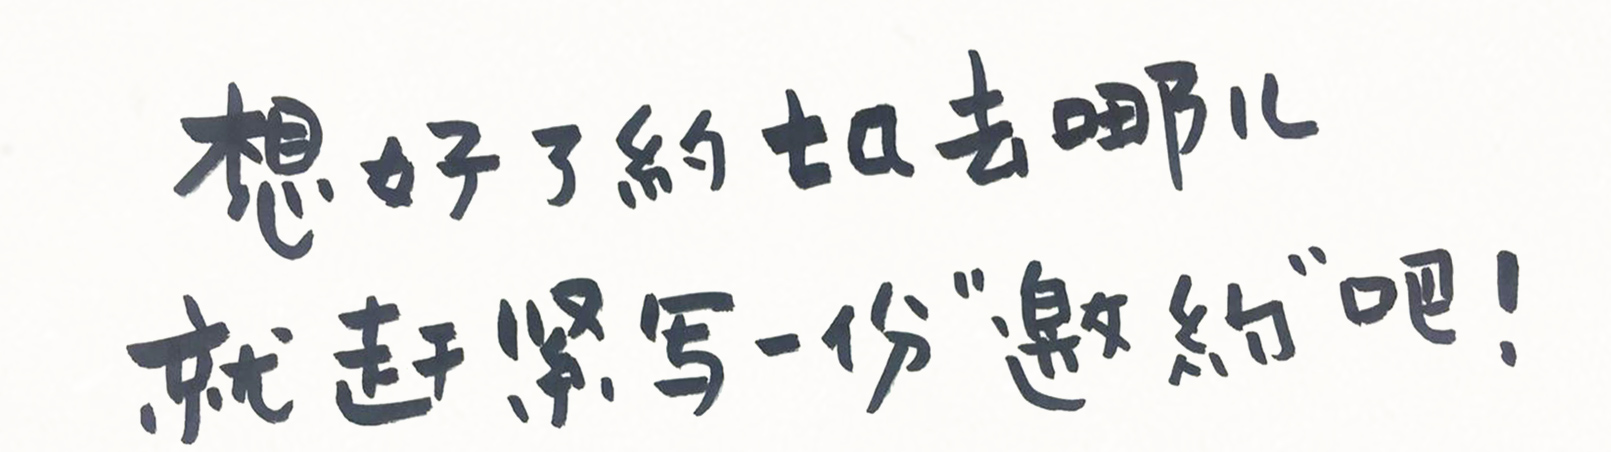 想好了約ta去哪儿
就赶紧写一份"邀約"吧!